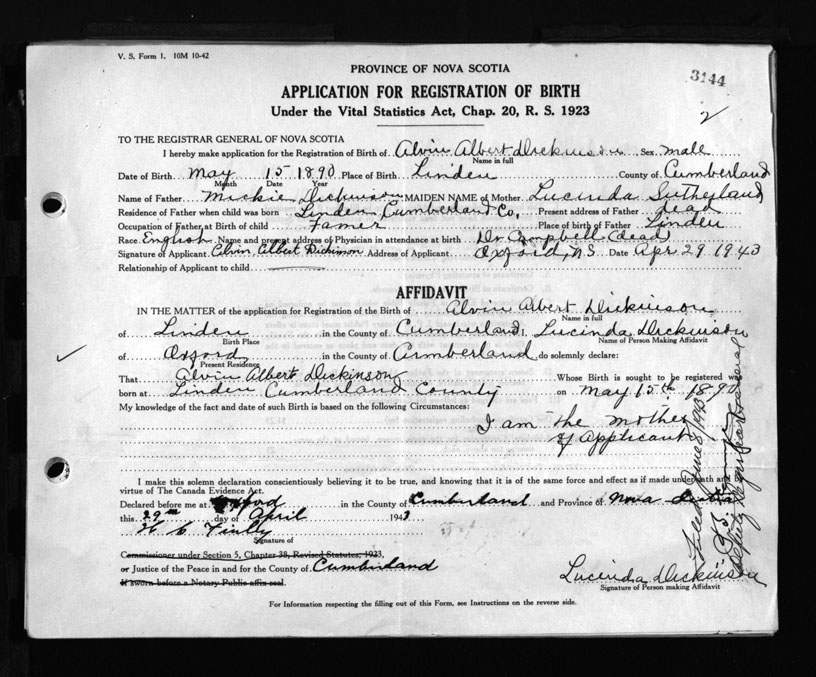 V. S. Form 1. 10M 10-42
PROVINCE OF NOVA SCOTIA
3144
APPLICATION FOR REGISTRATION OF BIRTH
2
Under the Vital Statistics Act, Chap. 20, R. S. 1923
TO THE REGISTRAR GENERAL OF NOVA SCOTIA
I hereby make application for the Registration of Birth of Alvin Albert Dickinson Sex male
Name in full
Date of Birth May 15 1890 Place of Birth Linden County of Cumberland
Month Date Year
Name of Father Mickie Dickinson MAIDEN NAME of Mother Lucinda Sutherland
Residence of Father when child was born Linden Cumberland Co. Present address of Father dead
Occupation of Father at Birth of child Famer Place of birth of Father Linden
Race English Name and present address of Physician in attendance at birth Dr Campbell (dead)
Signature of Applicant Alvin Albert Dickinson Address of Applicant Oxford, N.S. Date Apr 29 1943
Relationship of Applicant to child
AFFIDAVIT
IN THE MATTER of the application for Registration of the Birth of Alvin Albert Dickinson
Name in full
of Linden in the County of Cumberland I, Lucinda Dickinson
Birth Place Name of Person Making Affidavit
of Oxford in the County of Cumberland do solemnly declare:
Present Residence
That Alvin Albert Dickinson Whose Birth is sought to be registered was
born at Linden Cumberland County on May 15th 1890
My knowledge of the fact and date of such Birth is based on the following Circumstances:
I am the mother
of applicant
I make this solemn declaration conscientiously believing it to be true, and knowing that it is of the same force and effect as if made under oath and
virtue of The Canada Evidence Act.
Declared before me at Oxford in the County of Cumberland and Province of Nova Scotia
this 29th day of April 1943
H C Finlay
Signature of
Commissioner under Section 5, Chapter 38, Revised Statutes, 1923,
or Justice of the Peace in and for the County of Cumberland
If sworn before a Notary Public affix seal.
Lucinda Dickinson
Signature of Person making Affidavit
For Information respecting the filling out of this Form, see Instructions on the reverse side.
Filed June 8/1943
Deputy Registrar General